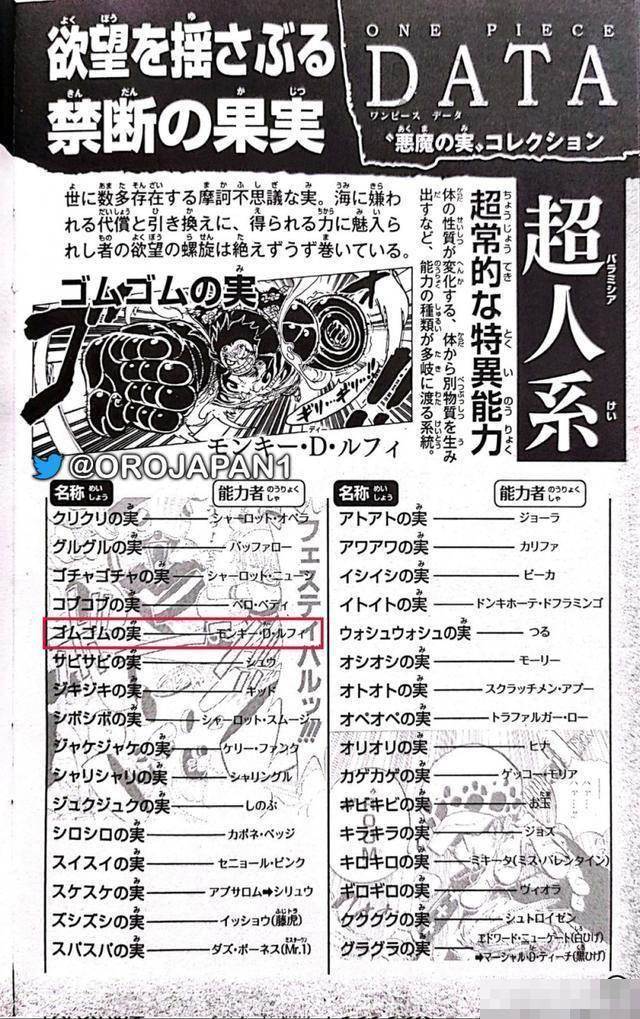 欲望を揺さぶる
禁断の果実
ONE PIECE
DATA
ワンピース データ
“悪魔の実„コレクション
世に数多存在する摩訶不思議な実。海に嫌わ
れる代償と引き換えに、得られる力に魅入ら
れし者の欲望の螺旋は絶えずうず巻いている。
超人系
パラミシア
超常的な特異能力
体の性質が変化する、体から別物質を生み
出すなど、能力の種類が多岐に渡る系統。
ゴムゴムの実
モンキー・D・ルフィ
@OROJAPAN1
名称 能力者
クリクリの実 シャーロット・オペラ
グルグルの実 バッファロー
ゴチャゴチャの実 シャーロット・ニューシ
コブコブの実 ベロ・ベティ
ゴムゴムの実 モンキー・D・ルフィ
サビサビの実 シュウ
ジキジキの実 キッド
シボシボの実 シャーロット・スムージー
ジャケジャケの実 ケリー・ファンク
シャリシャリの実 シャリングル
ジュクジュクの実 しのぶ
シロシロの実 カポネ・ベッジ
スイスイの実 セニョール・ピンク
スケスケの実 アブサロム➡シリュウ
ズシズシの実 イッショウ(藤虎)
スパスパの実 ダズ・ボーネス(Mr.1)
名称 能力者
アトアトの実 ジョーラ
アワアワの実 カリファ
イシイシの実 ピーカ
イトイトの実 ドンキホーテ・ドフラミンゴ
ウォシュウォシュの実 つる
オシオシの実 モーリー
オトオトの実 スクラッチメン・アプー
オペオペの実 トラファルガー・ロー
オリオリの実 ヒナ
カゲカゲの実 ゲッコー・モリア
キビキビの実 お玉
キラキラの実 ジョズ
キロキロの実 ミキータ(ミス・バレンタイン)
ギロギロの実 ヴィオラ
ククククの実 シュトロイゼン
グラグラの実 エドワード・ニューゲート(白ひげ)
➡マーシャル・D・ティーチ(黒ひげ)
フェスティバルッ!!!